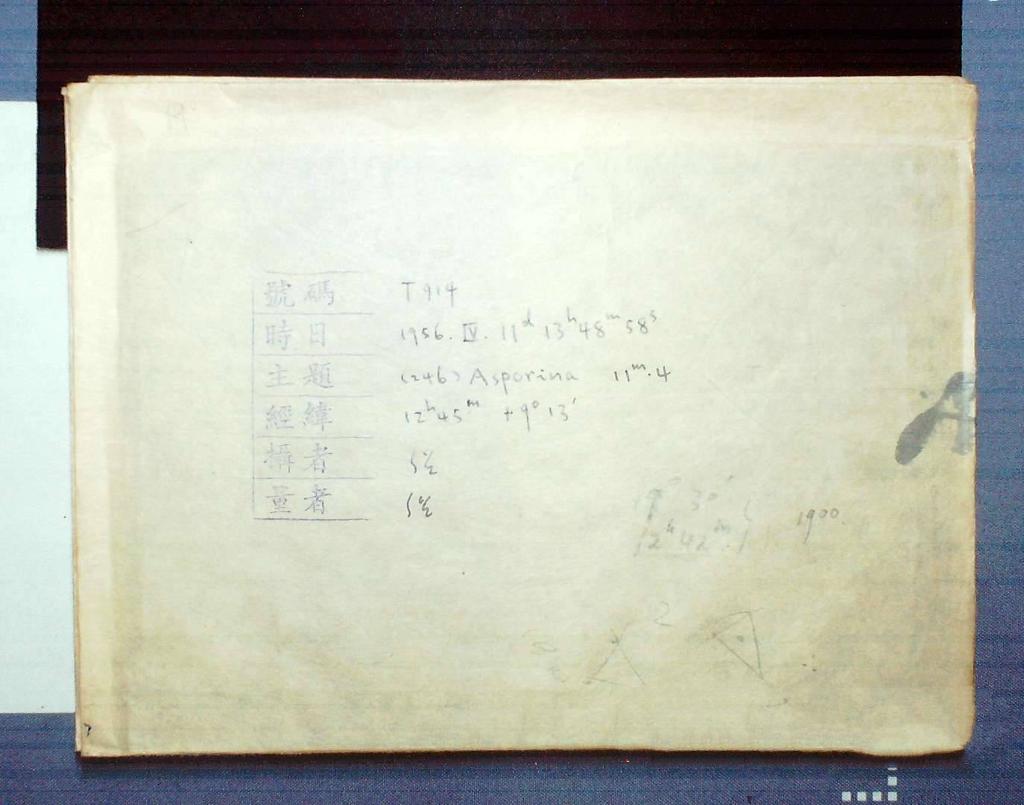 號碼 T914
時日 1956. Ⅳ. 11ᵈ 13ʰ48ᵐ58ˢ
主題 (246) Asporina 11ᵐ.4
經緯 12ʰ45ᵐ +9° 13′
攝者
量者
9° 30′
12ʰ 42ᵐ.1 1900.
2